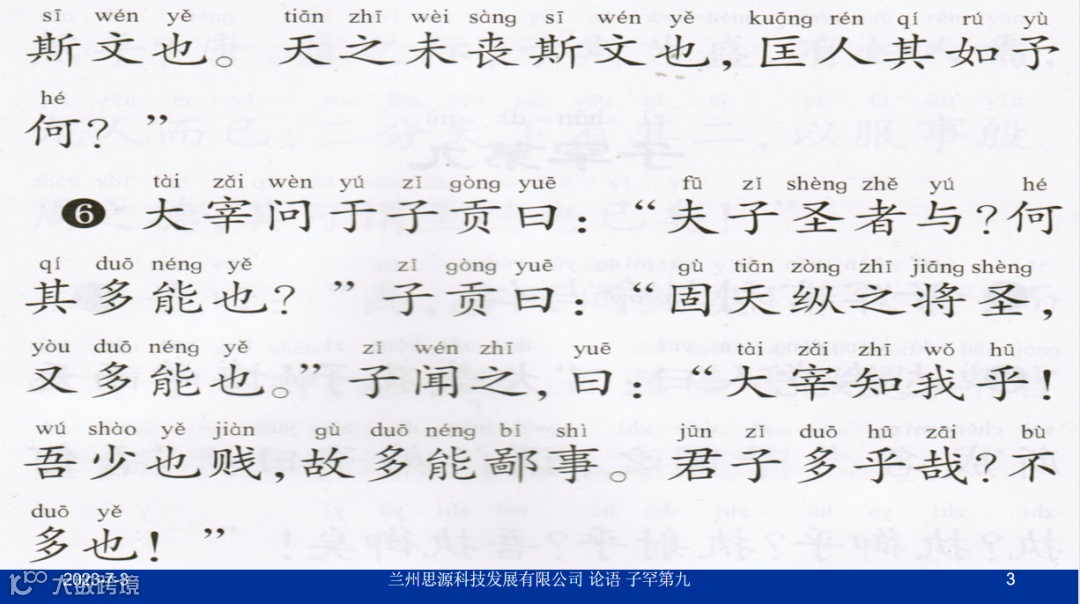 sī wén yě tiān zhī wèi sàng sī wén yě kuāng rén qí rú yù
斯文也。天之未丧斯文也,匡人其如予
hé
何?”
tài zǎi wèn yú zǐ gòng yuē fū zǐ shèng zhě yú hé
❻ 大宰问于子贡曰:“夫子圣者与?何
qí duō néng yě zǐ gòng yuē gù tiān zòng zhī jiāng shèng
其多能也?”子贡曰:“固天纵之将圣,
yòu duō néng yě zǐ wén zhī yuē tài zǎi zhī wǒ hū
又多能也。”子闻之,曰:“大宰知我乎!
wú shào yě jiàn gù duō néng bǐ shì jūn zǐ duō hū zāi bù
吾少也贱,故多能鄙事。君子多乎哉?不
duō yě
多也!”
2023-7-3 兰州思源科技发展有限公司 论语 子罕第九 3
大数跨境